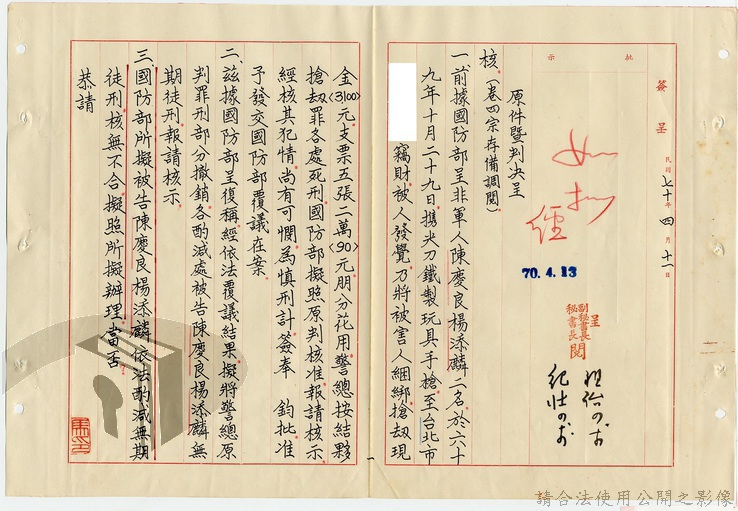 批示
簽呈
民國七十年四月十一日
如擬
經
70.4.13
呈
副秘書長
秘書長
閱
原件暨判決呈
核。(卷四宗存備調閱)
一、前據國防部呈非軍人陳慶良楊添麟二名於六十
九年十月二十九日携尖刀鐵製玩具手搶至台北市
竊財被人發覺乃將被害人綑綁搶刼現
金(3100)元支票五張二萬(90)元朋分花用警總按結夥
搶刼罪各處死刑國防部擬照原判核准報請核示
經核其犯情尚有可憫為慎刑計簽奉 鈞批准
予發交國防部覆議在案。
二、茲據國防部呈復稱經依法覆議結果擬將警總原
判罪刑部分撤銷各酌減處被告陳慶良楊添麟無
期徒刑報請核示。
三、國防部所擬被告陳慶良楊添麟依法酌減無期
徒刑核無不合擬照所擬辦理當否
恭請
請合法使用公開之影像